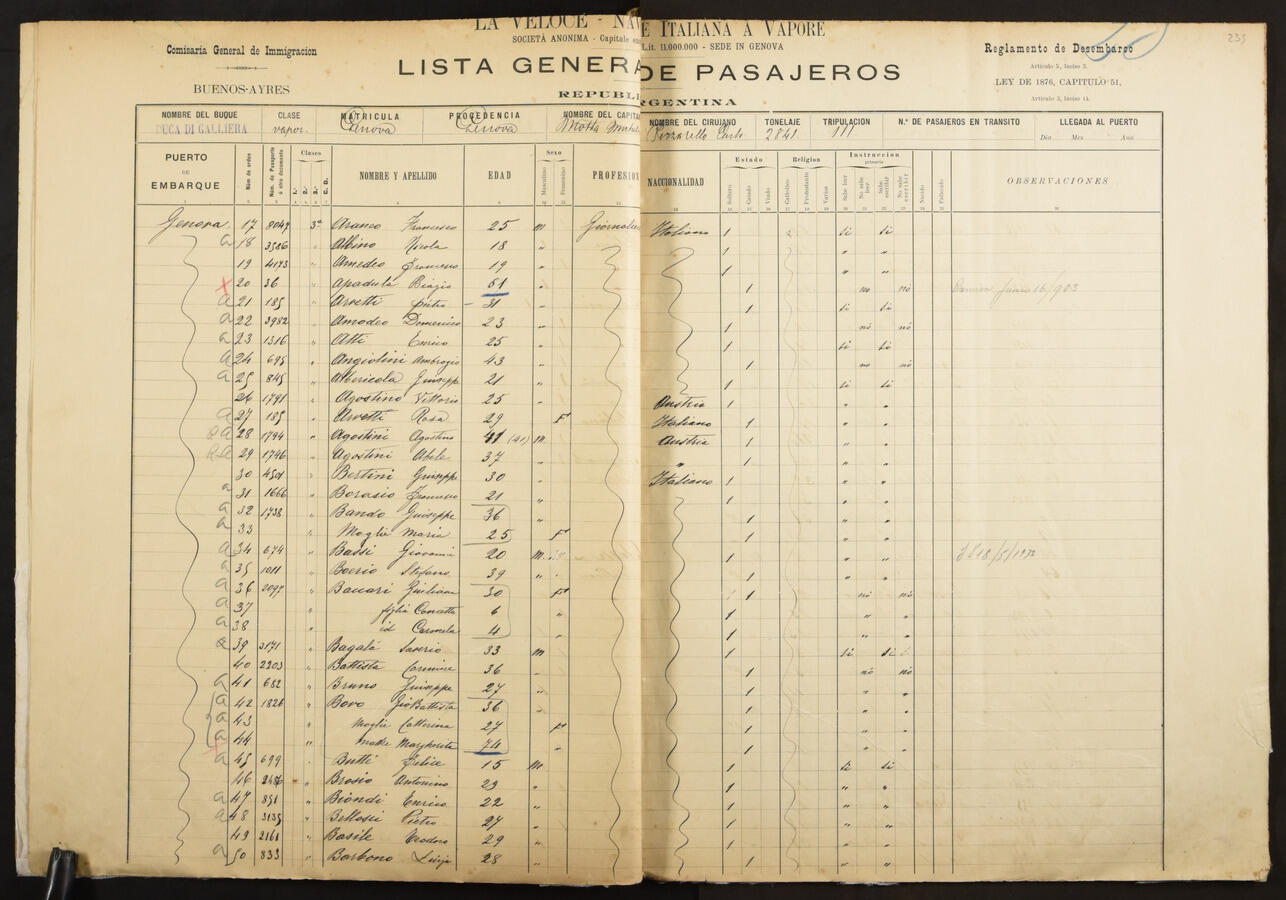 LA VELOCE - NAV E ITALIANA A VAPORE
SOCIETÀ ANONIMA - Capitale Lit. 11.000.000 - SEDE IN GENOVA
Comisaria General de Immigracion
BUENOS-AYRES
LISTA GENERA DE PASAJEROS
REPUBLI RGENTINA
Reglamento de Desembarco
Articulo 5, Inciso 2.
LEY DE 1876, CAPITULO 51,
Articulo 3, Inciso 14.
235
NOMBRE DEL BUQUE CLASE MATRICULA PROCEDENCIA NOMBRE DEL CAPITA NOMBRE DEL CIRUJANO TONELAJE TRIPULACION N.º DE PASAJEROS EN TRANSITO LLEGADA AL PUERTO
DUCA DI GALLIERA vapor Genova Genova 2841 111 Dia Mes Ano
PUERTO DE EMBARQUE Núm de orden Núm. de Pasaporte ó otro documento Clases 1.ª 2.ª 3.ª C. D. NOMBRE Y APELLIDO EDAD Sexo Masculino Femenino PROFESION NACCIONALIDAD Estado Soltero Casado Viudo Religion Catolico Protestante Varios Instruccion primaria Sabe leer No sabe leer Sabe escribir No sabe escribir Nacido Fallecido OBSERVACIONES
Genova 17 8049 3ª Francesco 25 m Giornal Italiano 1 si si
a 18 3526 " Albino Nicola 18 " 1 " "
19 4173 " Amedeo Francesco 19 " 1 " "
20 36 " Apadula Biagio 61 " 1 no nò
a 21 185 " Arvetti Pietro 31 " 1 si si
a 22 3982 " Amodeo Domenico 23 " 1 nò nò
a 23 1316 " Atti Enrico 25 " 1 si si
a 24 695 " Angiolini Ambrogio 43 " 1 no nò
a 25 845 " Albericola Giuseppe 21 " 1 si si
26 1791 " Agostino Vittorio 25 " Austria 1 " "
a 27 185 " Arvetti Rosa 29 F Italiano 1 " "
28 1794 " Agostini Agostino 41 (41) m Austria 1 " "
29 1746 " Agostini Abele 37 " " 1 " "
30 4501 " Bertini Giuseppe 30 " Italiano 1 " "
a 31 1666 " Borasio Francesco 21 " 1 " "
a 32 1738 " Bando Giuseppe 36 " 1 " "
a 33 " Moglie Maria 25 F 1 " "
a 34 674 " Bassi Giovanni 20 M 1 " "
a 35 1011 " Boerio Stefano 39 " 1 " "
a 36 2097 " Baccari Giuliana 30 F 1 nò nò
a 37 " figlia Concetta 6 " 1 " "
a 38 " id Carmela 4 " 1 " "
a 39 3171 " Bagalà Saverio 33 m 1 si si
40 2203 " Battista Carmine 36 " 1 nò nò
a 41 682 " Bruno Giuseppe 27 " 1 " "
a 42 1826 " Bovo Gio Battista 36 " 1 " "
a 43 " Moglie Catterina 27 F 1 " "
a 44 " madre Margherita 74 " 1 " "
a 45 699 " Butti Felice 15 M 1 si si
46 " Brosio Antonino 23 " 1 " "
a 47 851 " Biondi Enrico 22 " 1 " "
a 48 3135 " Bellosi Pietro 27 " 1 " "
49 2161 " Basile Teodoro 29 " 1 " "
a 50 833 " Barbono Luigi 28 " 1 " "